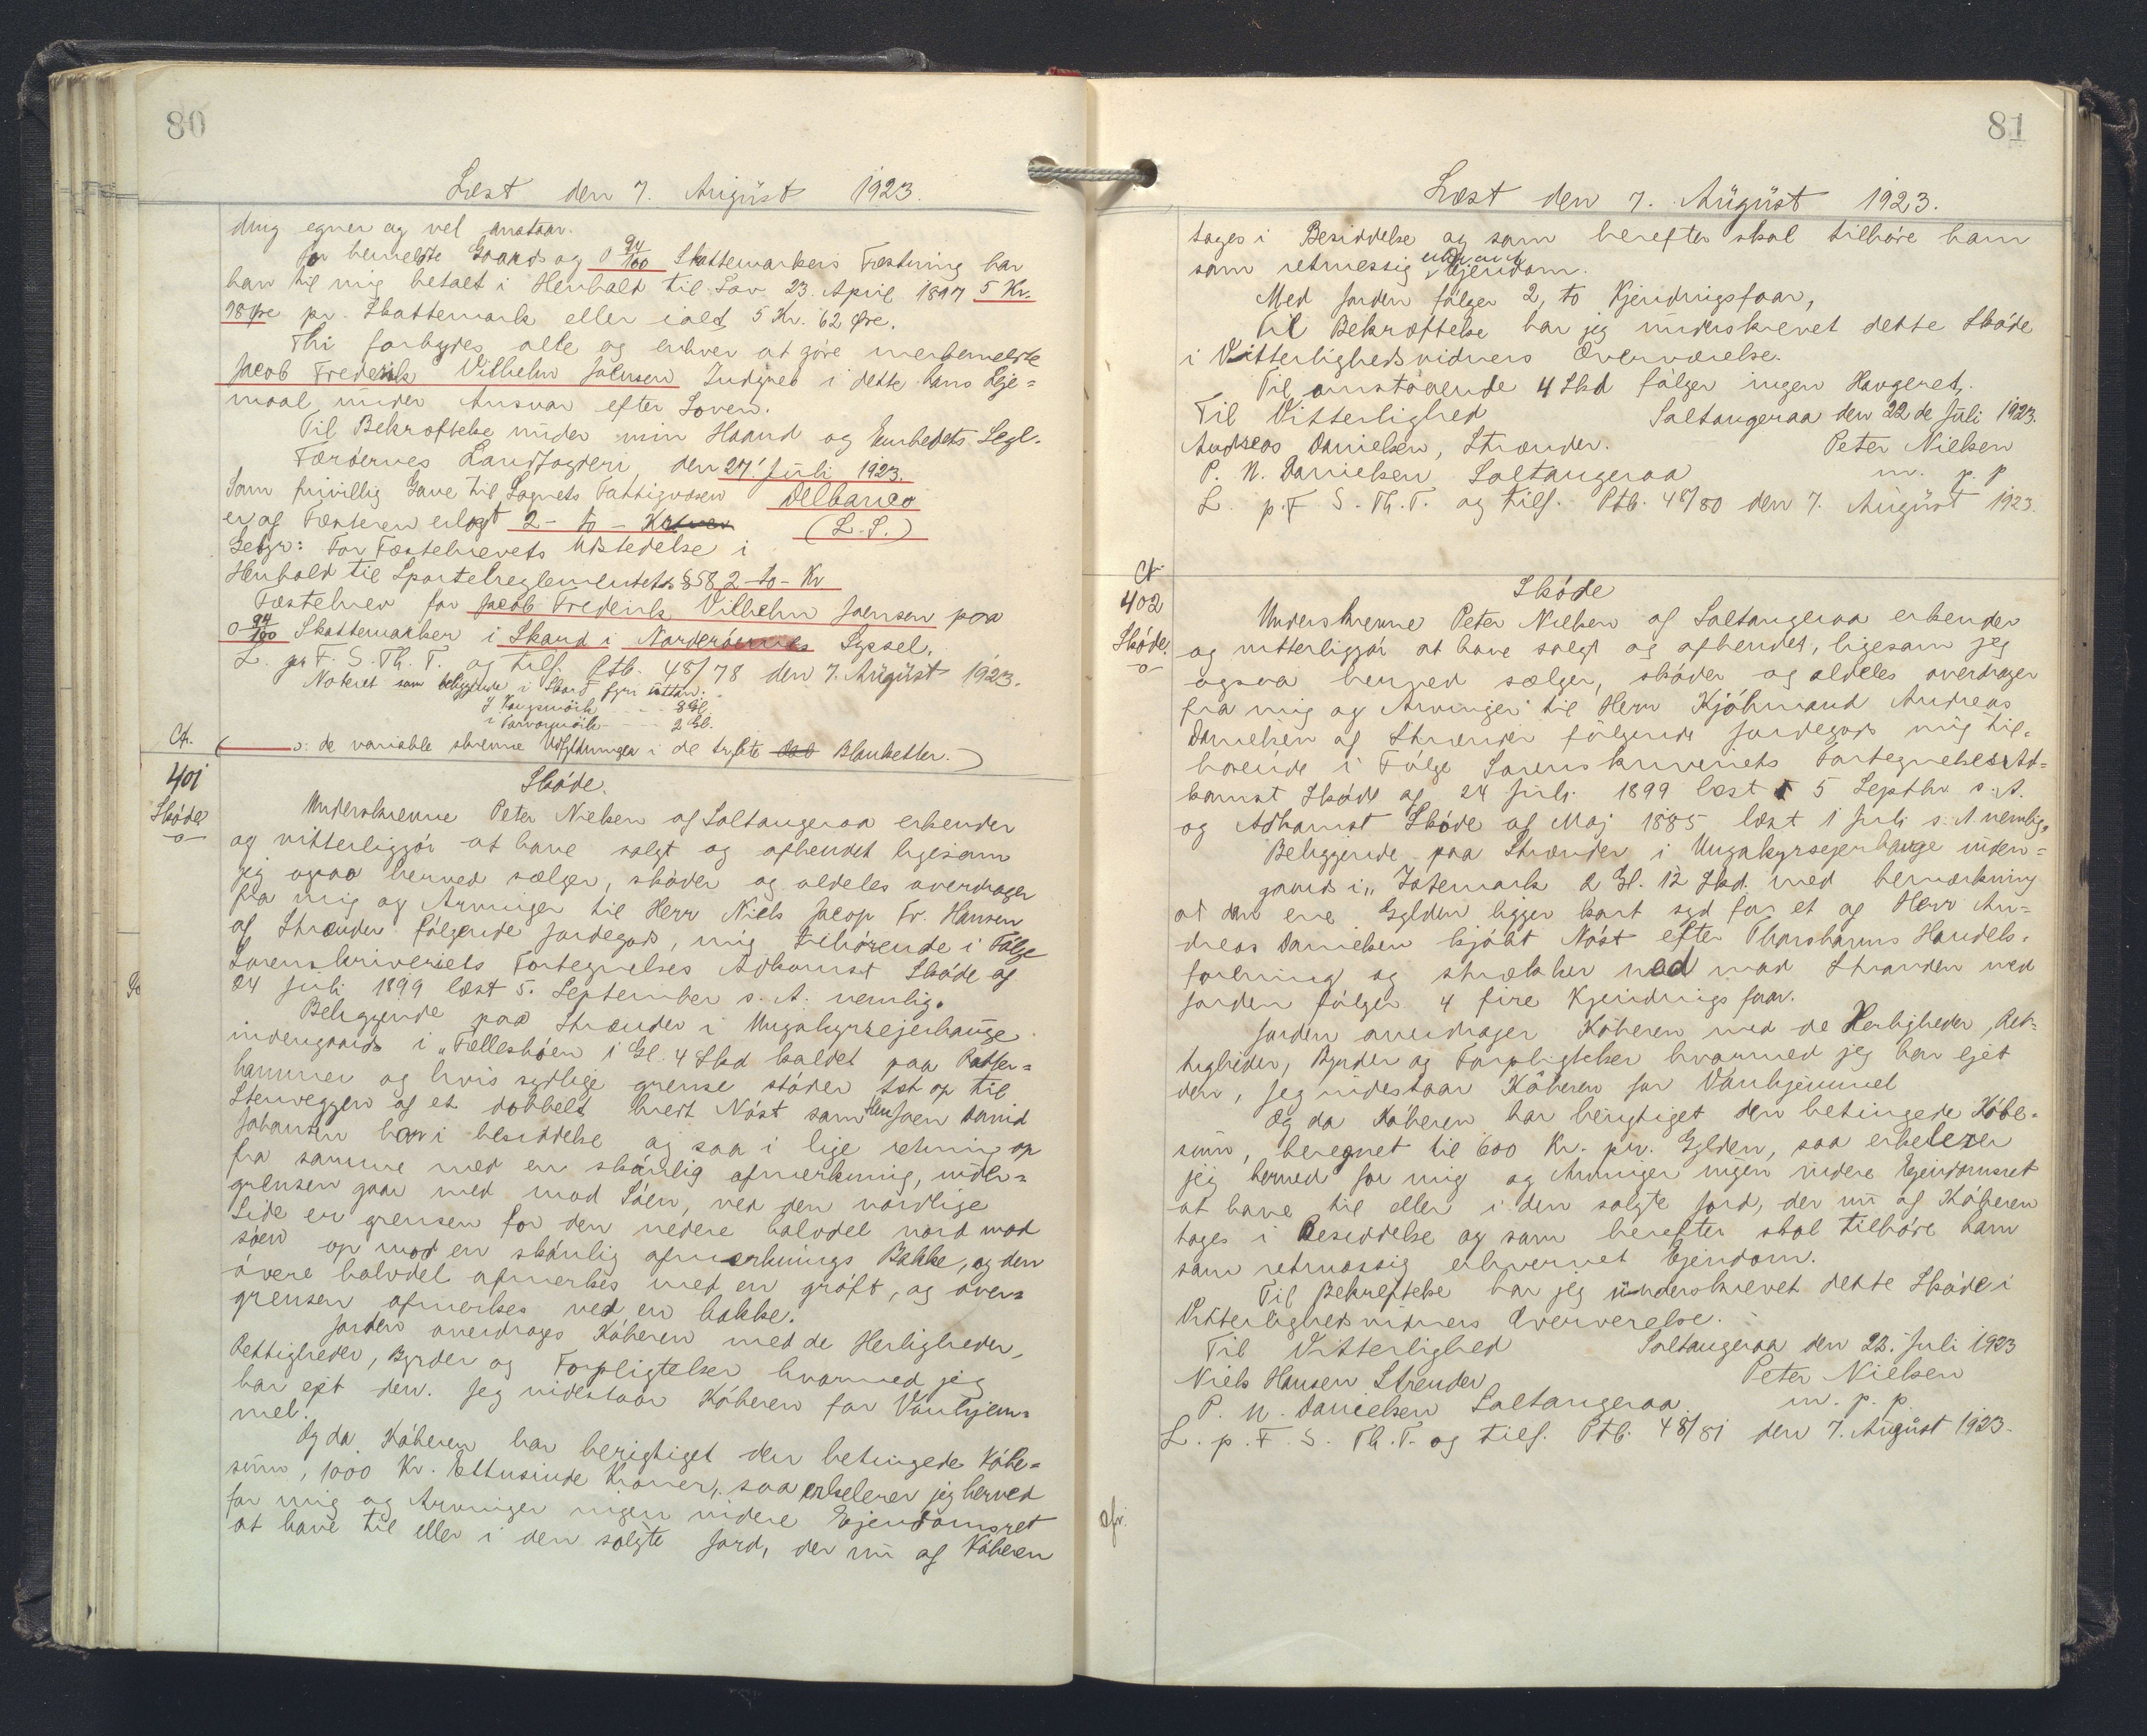 80
Læst den 7. August 1923.
ding egner og vel anstaar.
For bemeldte Gaards og 0 94/100 Skattemarkers Fæstning har
han til mig betalt i Henhold til Lov 23. April 1897 5 Kr.
98 Øre pr. Skattemark eller ialt 5 Kr. 62 Øre.
Thi forbydes alle og enhver at gøre merbemeldte
Jacob Frederik Vilhelm Joensen Indgreb i dette hans Leje=
maal under Ansvar efter Loven.
Til Bekræftelse under min Haand og Embedets Segl.
Færøernes Landfogderi, den 27' Juli 1923.
Som frivillig Gave til Sognets Fattigvæsen Delbanco
er af Fæsteren erlagt 2 - to - Kroner (L. S.)
Gebyr: For Fæstebrevets Udstedelse i
Henhold til Sportelreglementets § 58 2 - to - Kr
Fæstebrev for Jacob Frederik Vilhelm Joensen paa
0 94/100 Skattemarker i Skaard i Norderøernes Syssel.
L. p. F. S. Th. T. og tilf. Ptb. 48/78 den 7. August 1923.
Noteret som beliggende i Skard fyri uttan:
8 Gl.
2 Gl.
Cfr.
( ɔ: de variable skrevne Udfyldninger i de trykte Blanketter. )
401
Skøde
Skøde.
Underskrevne Peter Nielsen af Saltangeraa erkender
og vitterliggjør at have solgt og afhendet ligesom
jeg ogsaa herved sælger, skøder og aldeles overdrager
fra mig og Arvinger til Herr Niels Jacop Fr. Hansen
af Strænder følgende Jordegods, mig tilhørende i Følge
Sorenskriveriets Fortegnelses Adkomst Skøde af
24 Juli 1899 læst 5. September s. A. nemlig.
Beliggende paa Strænder i Ungakyrsejerhauge
indengaards i "Fælleshøen 1 Gl. 4 Skd kaldet paa Patter=
hammer og hvis sydlige grense støder tet op til
Stenveggen af et dobbelt bredt Nøst som Herr Joen David
Johansen har i besiddelse og saa i lige retning op
fra samme med en skønlig afmerkning, uden=
grensen gaar ned mod Søen, ved den nordlige
Side er grensen for den nedere halvdel nord mod
søen op mod en skønlig afmerknings Bakke, og den
øvere halvdel afmerkes med en grøft, og over=
grensen afmerkes ved en bakke.
Jorden overdrages Køberen med de Herligheder,
Rettigheder, Byrder og Forpligtelser hvormed jeg
har ejet den. Jeg indestaar Køberen for Vanhjem=
mel.
Og da Køberen har berigtiget den betingede Købe=
sum, 1000 Kr. Ettusinde Kroner, saa erkelerer jeg herved
for mig og Arvinger ingen videre Ejendomsret
at have til eller i den solgte Jord, der nu af Køberen
81
Læst den 7. August 1923.
tages i Besiddelse og som herefter skal tilhøre ham
som retmessig erhvervet Ejendom.
Med Jorden følger 2, to Kjendingsfaar,
Til Bekræftelse har jeg underskrevet dette Skøde
i Vitterlighedsvidners Overværelse.
Til omstaaende 4 Skd følger ingen Haugeret.
Til Vitterlighed Saltangeraa den 22 de Juli 1923.
Andreas Danielsen, Strænder. Peter Nielsen
P. N. Danielsen Saltangeraa m. p. p
L. p. F. S. Th. T. og tilf. Ptb. 48/80 den 7. August 1923.
Cfr.
402
Skøde.
Skøde
Underskrevne Peter Nielsen af Saltangeraa erkender
og vitterliggjør at have solgt og afhendet, ligesom jeg
ogsaa herved sælger, skøder og aldeles overdrager
fra mig og Arvinger til Herr Kjøbmand Andreas
Danielsen af Strænder følgende Jordegods mig til=
hørende i Følge Sorenskriveriets Fortegnelses Ad=
komst Skøde af 24 Juli 1899 læst 5 Septbr s. A.
og Adkomst Skøde af Maj 1885 læst 1 Juli s. A nemlig.
Beliggende paa Strænder i Ungakyrsejerhauge inden=
gaards i "Totemark 2 Gl. 12 Skd. med bemerkning
at den ene Gylden ligger kort syd for et af Herr An=
dreas Danielsen kjøbt Nøst efter Thorshavns Handels=
forening og strekker ned mod Stranden med
Jorden følger 4 fire Kjendings faar.
Jorden overdrager Køberen med de Herligheder, Ret=
tigheder, Byrder og Forpligtelser hvormed jeg har ejet
den, jeg indestaar Køberen for Vanhjemmel
Og da Køberen har berigtiget den betingede Købe=
sum, beregnet til 600 Kr. pr. Gylden, saa erkelerer
jeg herved for mig og Arvinger ingen videre Ejendomsret
at have til eller i den solgte Jord, der nu af Køberen
tages i Besiddelse og som herefter skal tilhøre ham
som retmæssig erhvervet Ejendom.
Til Bekreftelse har jeg underskrevet dette Skøde i
Vitterlighedsvidners Oververelse.
Til Vitterlighed Saltangeraa den 22. Juli 1923
Niels Hansen Strender Peter Nielsen
P. N. Danielsen Saltangeraa. m. p. p.
L. p. F. S. Th. T. og tilf. Ptb. 48/81 den 7. August 1923.
Cfr.